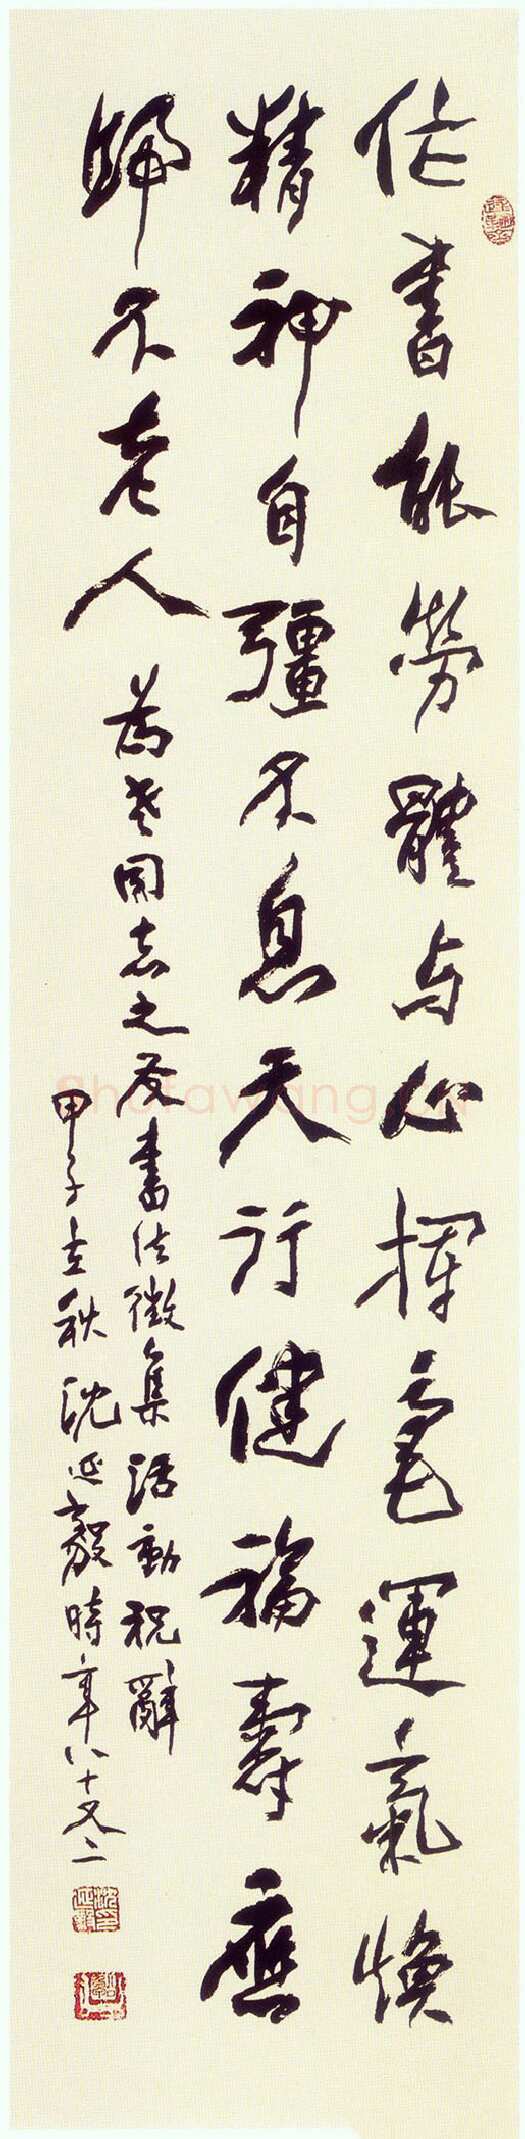 作書能勞體与心揮毫運氣煥
精神自彊不息天行健福壽應
歸不老人
為老同志之友書法徵集活動祝辭
甲子立秋沈延毅時年八十又二
Shufawang.cn